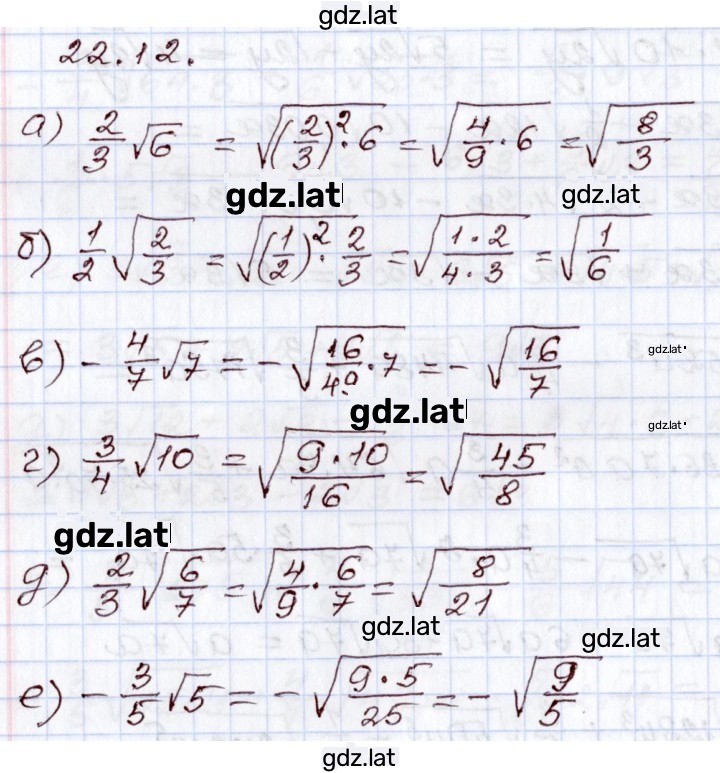 gdz.lat
22.12.
а) 2/3 √6 = √((2/3)² · 6) = √(4/9 · 6) = √(8/3)
gdz.lat gdz.lat
б) 1/2 √(2/3) = √((1/2)² · 2/3) = √((1 · 2)/(4 · 3)) = √(1/6)
в) - 4/7 √7 = - √(16/49 · 7) = - √(16/7)
gdz.lat
gdz.lat
gdz.lat
г) 3/4 √10 = √((9 · 10)/16) = √(45/8)
gdz.lat
д) 2/3 √(6/7) = √(4/9 · 6/7) = √(8/21)
gdz.lat gdz.lat
е) - 3/5 √5 = - √((9 · 5)/25) = - √(9/5)
gdz.lat